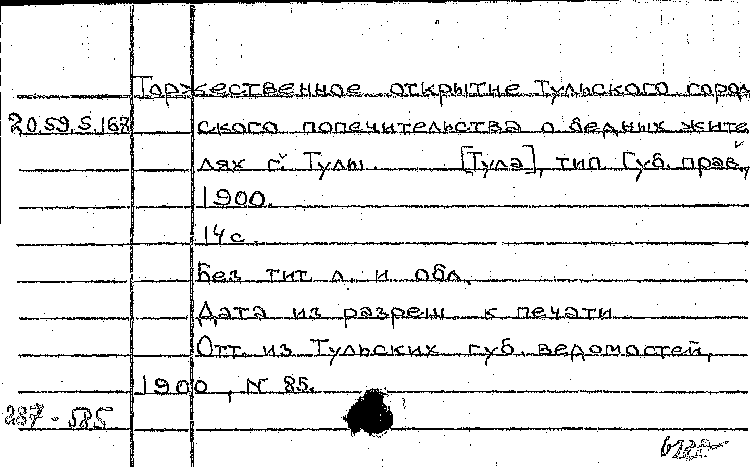 Торжественное открытие Тульского город
20.59.5.167 ского попечительства о бедных жите
лях г. Тулы. [Тула], тип Губ. прав.,
1900.
14 с.
Без тит. л. и обл.
Дата из разреш. к печати
Отт. из Тульских губ. ведомостей,
1900, N 85.
287-585